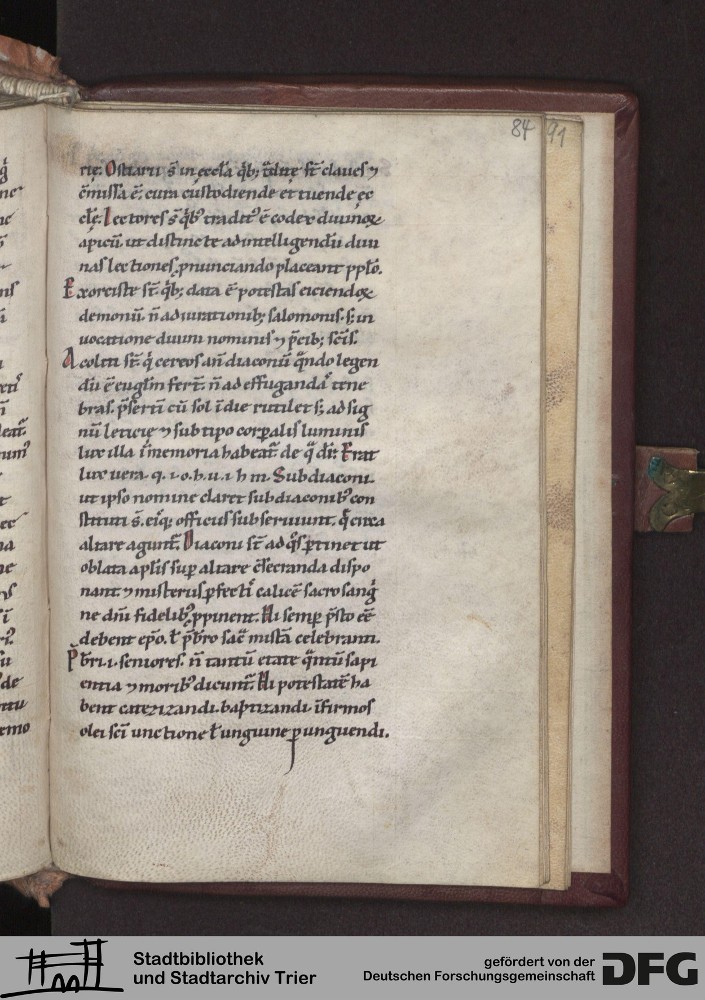 84 91
rię. Ostiarii s̄ in eccl̄a q̄b; t̄ditę st̄ claues ⁊
c̄missa ē. cura custodiende et tuende ęc
clę̄. Lectores s̄ q̄b⁹ tradit⁹ ē codex diuinoꝝ
apicū. ut distincte ad intelligendū diui
nas lectiones. ꝓnunciando placeant pp̄lo.
Exorciste st̄ q̄b; data ē potestas eiciendoꝝ
demonū. n̄ adiurationib; salomonis. s; in
uocatione diuini nominis ⁊ p̄cib; sc̄is.
Acoliti st̄ q̄ cereos añ diaconū q̄ndo legen
dū ē eugl̄iū fert̄. n̄ ad effuganda᷑ tene
bras. p̄sertī cū sol ī die rutilet s; ad sig
nū leticię ⁊ sub tipo corꝑalis luminis
lux illa ī memoria habeat᷑ de q̄ dr̄. Erat
lux uera. q. i. o. h. u. i. h m. Subdiaconi.
ut ipso nomine claret subdiaconib⁹ con
stituti s̄. eiq; officiis subseruiunt. q̄ circa
altare agunt᷑. Diaconi st̄ ad q̄s ꝑtinet ut
oblata a pl̄is suꝑ altare c̄secranda dispo
nant ⁊ misteriis ꝑfectı᷑ calicē sacro sanḡ
ne dn̄i fidelib⁹ ꝓpinent. Hi semꝑ p̄sto eē
debent ep̄o. ł pb̄ro sac̄ mistā celebranti.
P̄b̄ri. i. seniores. n̄ tantū etate q̄ntū sapi
entia ⁊ morib⁹ dicunt᷑. Hi potestatē ha
bent catezizandi. baptizandi. īfirmos
olei sc̄i unctione ł unguine ꝑunguendi.
Stadtbibliothek
und Stadtarchiv Trier
gefördert von der
Deutschen Forschungsgemeinschaft
DFG